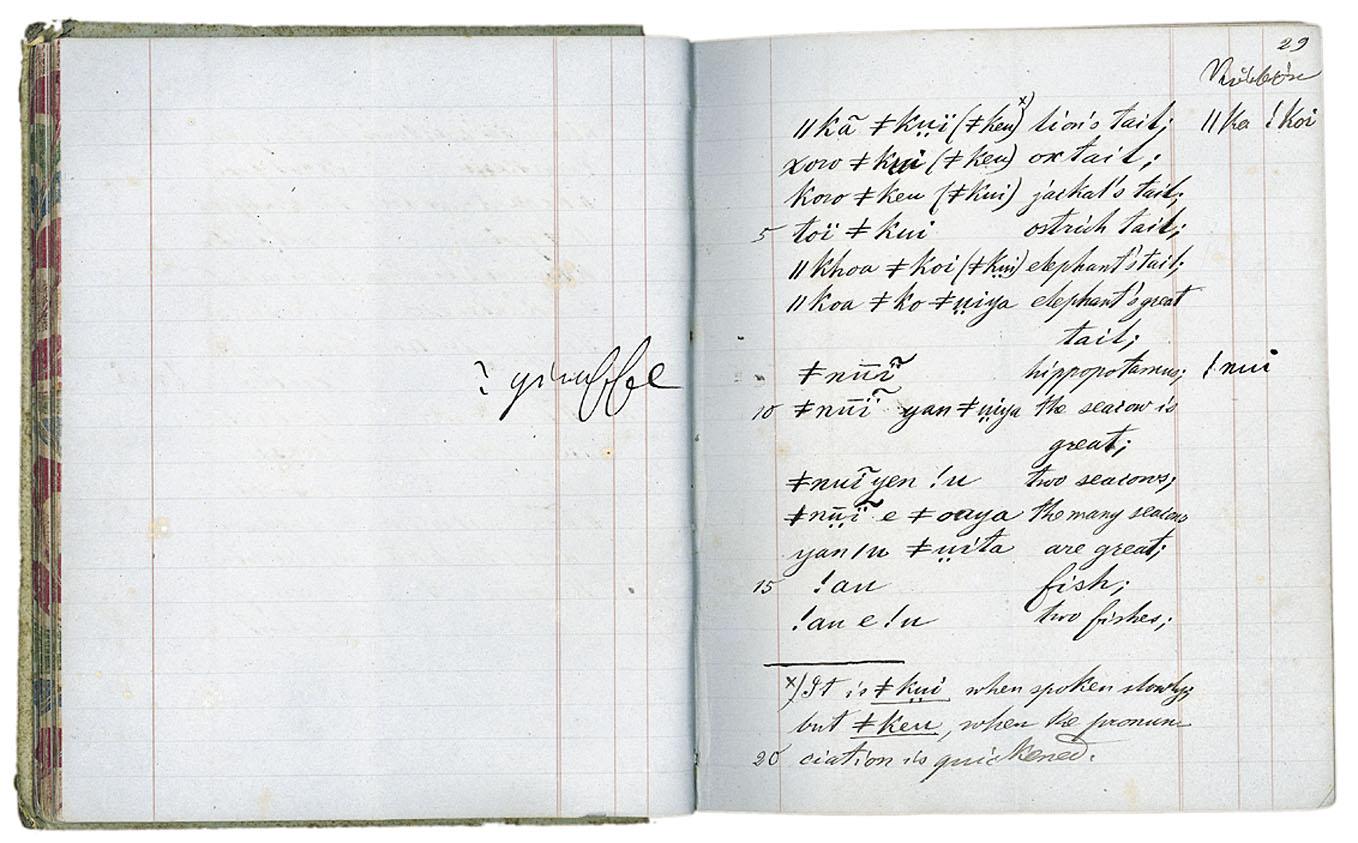 ? giraffe
29
ǁkã ǂkṳï (ǂkeu) x) lion's tail; ǁka !koi
xoro ǂkui (ǂkeu) ox tail;
koro ǂkeu (ǂkui) jackal's tail;
5 toï ǂkui ostrich tail;
ǁkhoa ǂkoi (ǂkṳi) elephant's tail;
ǁkoa ǂko ǂṳiya elephant's great
tail;
ǂnūı̃ hippopotamus; !nui
10 ǂnūı̃ yan ǂṳiya the seacow is
great;
ǂnuı̃ yen !u two seacows;
ǂnṳ̄ı̃ e ǂoaya the many seacows
yan /u ǂṳita are great;
15 !au fish;
!au e !u two fishes;
x) It is ǂkṳi when spoken slowly;
but ǂkeu, when the pronun
20 ciation is quickened.